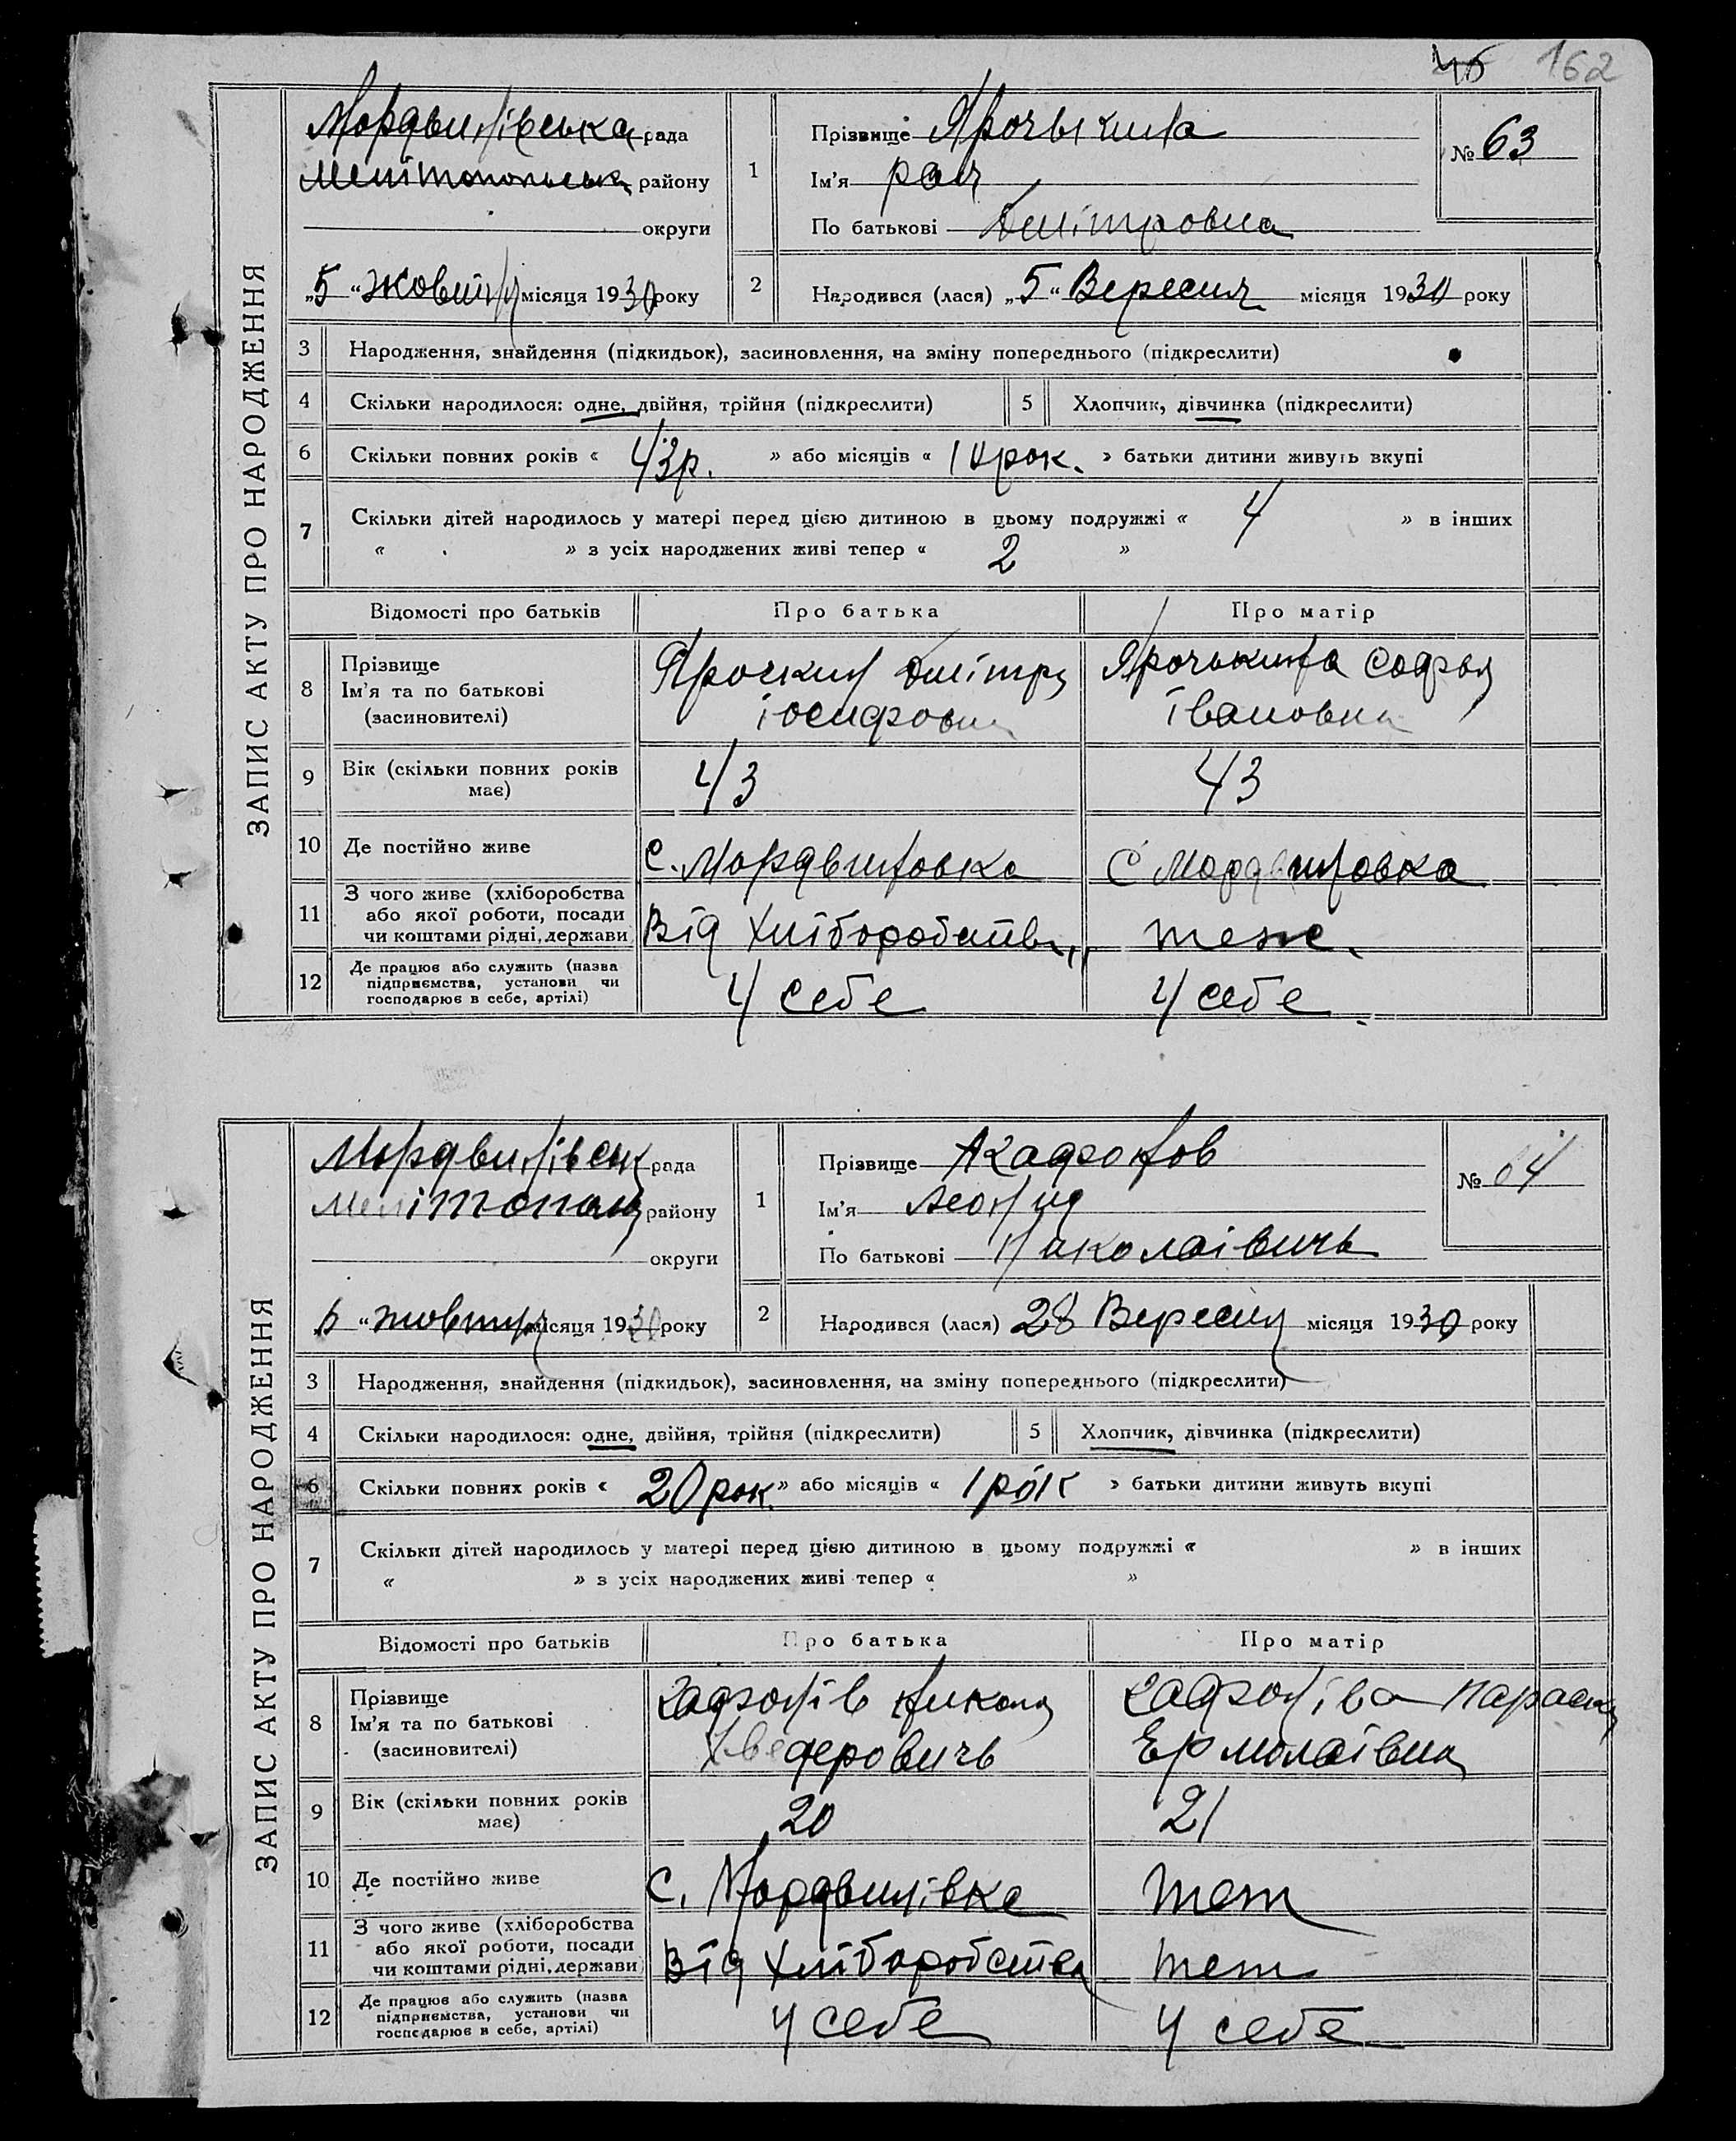 162
ЗАПИС АКТУ ПРО НАРОДЖЕННЯ
Мордвинівська рада
Мелітопольськ району
округи
„5“ жовтня місяця 1930 року
1
Прізвище Ярочькина
Ім'я рая
По батькові Дмітровна
№ 63
2
Народився (лася) „5“ Вересня місяця 1930 року
3 Народження, знайдення (підкидьок), засиновлення, на зміну попереднього (підкреслити)
4 Скільки народилося: одне, двійня, трійня (підкреслити) 5 Хлопчик, дівчинка (підкреслити)
6 Скільки повних років « 43р. » або місяців « рок. » батьки дитини живуть вкупі
7 Скільки дітей народилось у матері перед цією дитиною в цьому подружжі « 4 » в інших
« » з усіх народжених живі тепер « 2 »
Відомості про батьків Про батька Про матір
8 Прізвище
Ім'я та по батькові
(засиновителі)
Ярочкин Дмітрц Ярочькина Софья
іосифович Івановна
9 Вік (скільки повних років
має)
43 43
10 Де постійно живе с. Мордвиновка С Мордвиновка
11 З чого живе (хліборобства
або якої роботи, посади
чи коштами рідні, держави
Від Хліборобства теж.
12 Де працює або служить (назва
підприємства, установи чи
господарює в себе, артілі)
У себе У себе
ЗАПИС АКТУ ПРО НАРОДЖЕННЯ
Мордвинівськ рада
Мелітопольськ району
округи
„ “ жовтня місяця 1930 року
1
Прізвище Агафонов
Ім'я Леонид
По батькові Николаівичь
№ 64
2
Народився (лася) 28 Вересня місяця 1930 року
3 Народження, знайдення (підкидьок), засиновлення, на зміну попереднього (підкреслити)
4 Скільки народилося: одне, двійня, трійня (підкреслити) 5 Хлопчик, дівчинка (підкреслити)
6 Скільки повних років « 20 рок. » або місяців « 1 рік » батьки дитини живуть вкупі
7 Скільки дітей народилось у матері перед цією дитиною в цьому подружжі « » в інших
« » з усіх народжених живі тепер « »
Відомості про батьків Про батька Про матір
8 Прізвище
Ім'я та по батькові
(засиновителі)
Гафонів Никола Гафоніва Параска
Хведеровичь Ермолаівна
9 Вік (скільки повних років
має)
20 21
10 Де постійно живе С. Мордвинівка теж
11 З чого живе (хліборобства
або якої роботи, посади
чи коштами рідні, держави
Від Хліборобства теж
12 Де працює або служить (назва
підприємства, установи чи
господарює в себе, артілі)
У себе У себе